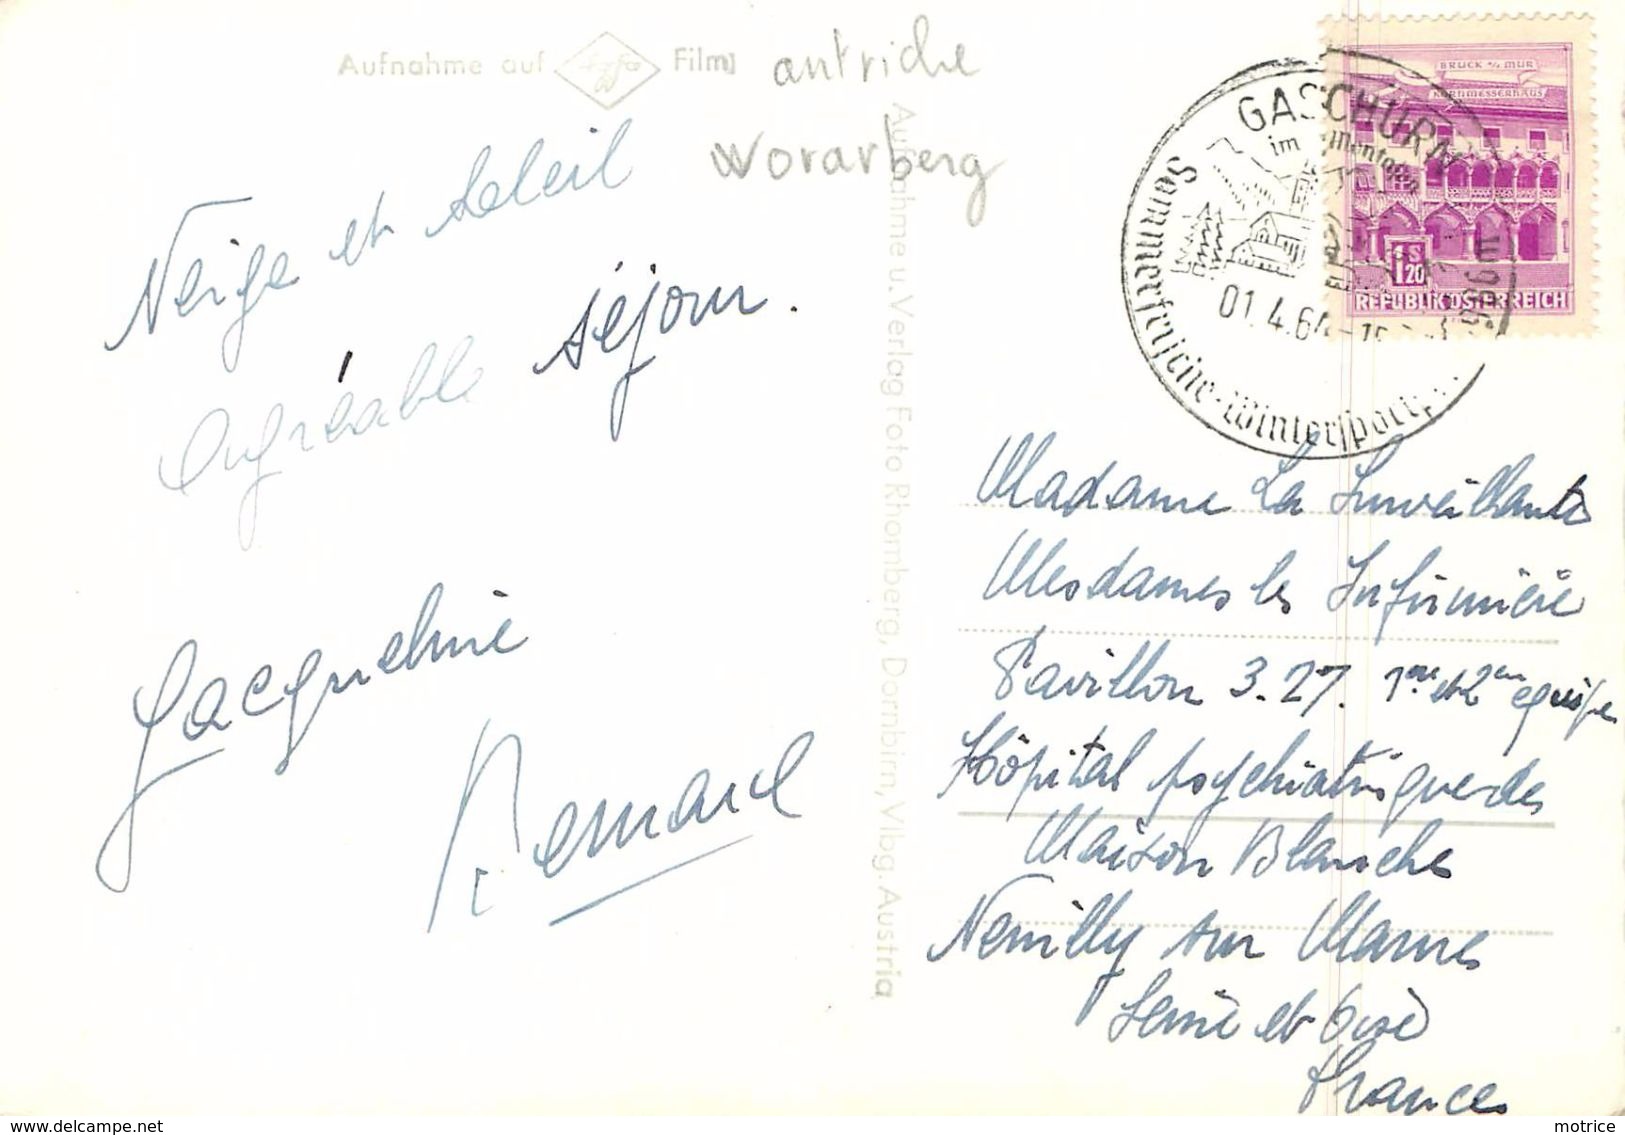 Aufnahme auf Agfa Film
antriche
Worarberg
Neige et soleil
Agréable séjour.
Jacqueline
Bernard
Aufnahme u. Verlag Foto Rhomberg, Dornbirn, Vlbg. Austria
GASCHURN
im Montafon
Sommerfrische - Wintersport
01.4.64
BRUCK a/MUR
KORNMESSERHAUS
1 S 20
REPUBLIK ÖSTERREICH
Madame La Surveillante
Mesdames les Infirmière
Pavillon 3.27. 1ère et 2èm équipe
Hôpital psychiatrique des
Maison Blanche
Neuilly sur Marne
Seine et Oise
France
delcampe.net
motrice